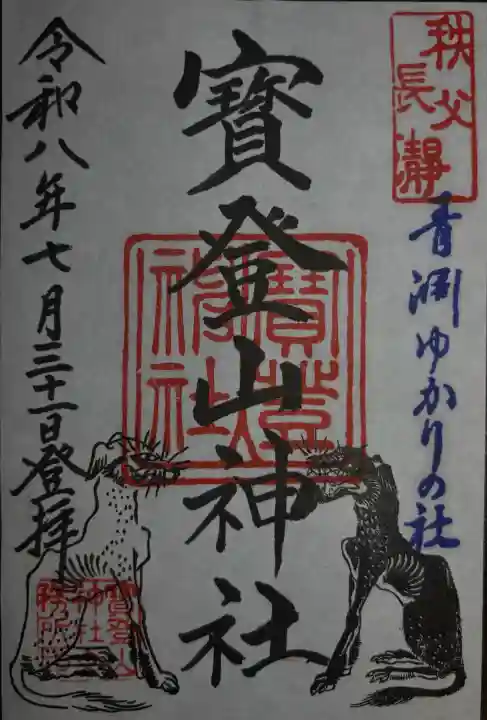 秩父
長瀞
青淵ゆかりの社
寶登山神社
寶登山
神社
令和八年七月三十一日登拝
寶登山
神社
務所